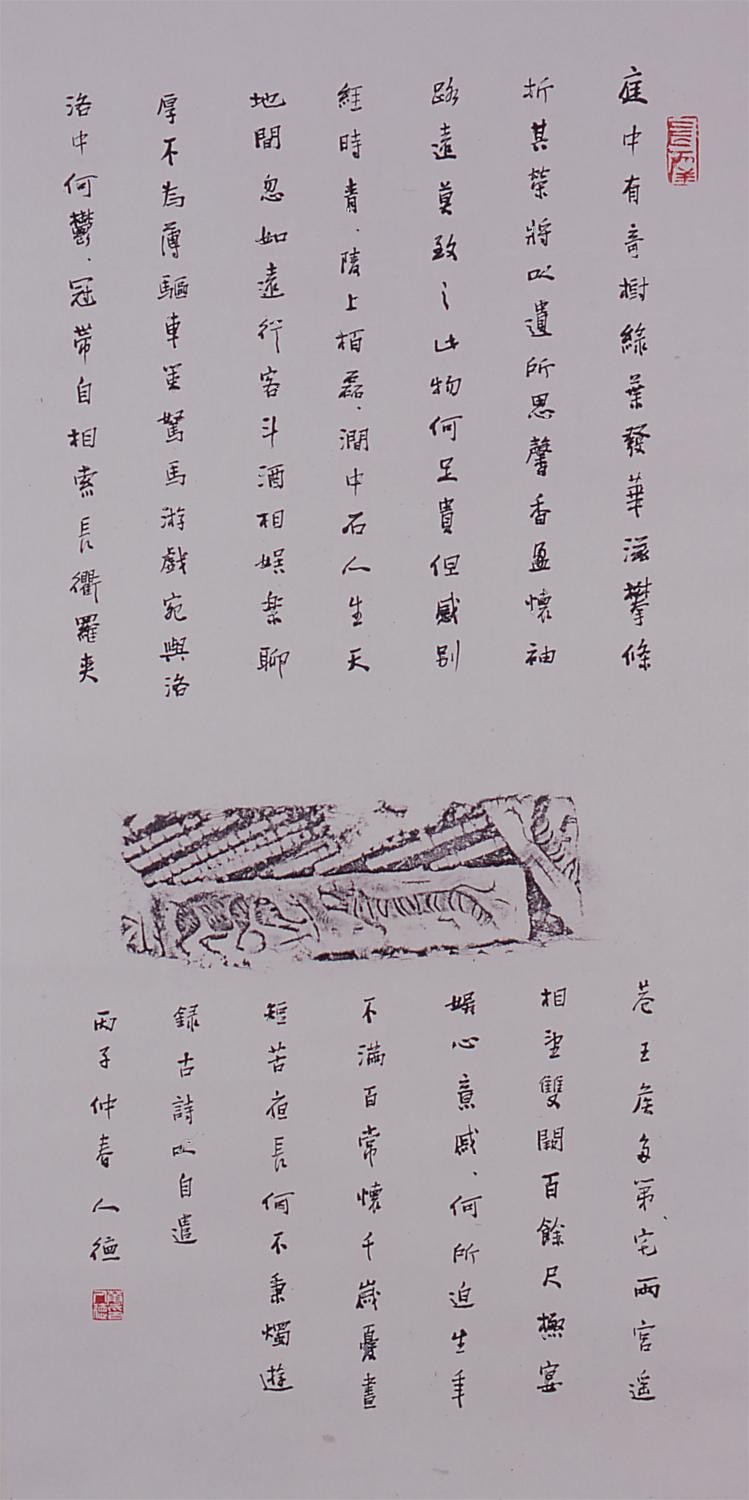 庭中有奇樹綠葉發華滋攀條
折其榮將以遺所思馨香盈懷袖
路遠莫致之此物何足貴但感別
經時青、陵上栢磊、澗中石人生天
地間忽如遠行客斗酒相娛樂聊
厚不為薄驅車策駑馬游戲宛與洛
洛中何鬱、冠帶自相索長衢羅夾
巷王侯多第、宅兩宮遥
相望雙闕百餘尺極宴
娛心意戚、何所迫生年
不滿百常懷千歲憂晝
短苦夜長何不秉燭遊
録古詩以自遣
丙子仲春人德